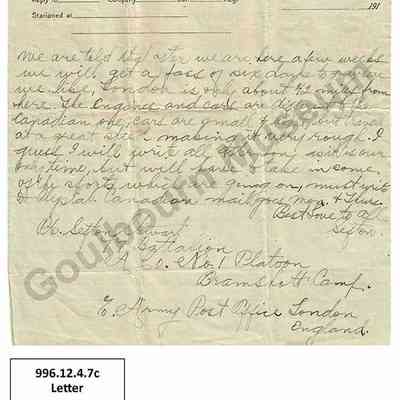 Reply to Company Regt
Stationed at 191
We are told that after we are here a few weeks
we will get a pass of six days to go where
we like, London is only about 42 miles from
here. The Engines and cars are different from
Canadian one, cars are small & engines travel
at a great steam making it very rough. I
guess I will write all as it is our
time, but will have to take in some
of the sports, which is going on, must quit
Canadian mail goes Mon. & Thurs.
Best Love to all
Sexton.
Pte. Sexton Stewart
Battalion
A Co. No. 1 Platoon
Bramshott Camp.
E. Army Post Office London
England.
Goulbourn Museum
996.12.4.7c
Letter